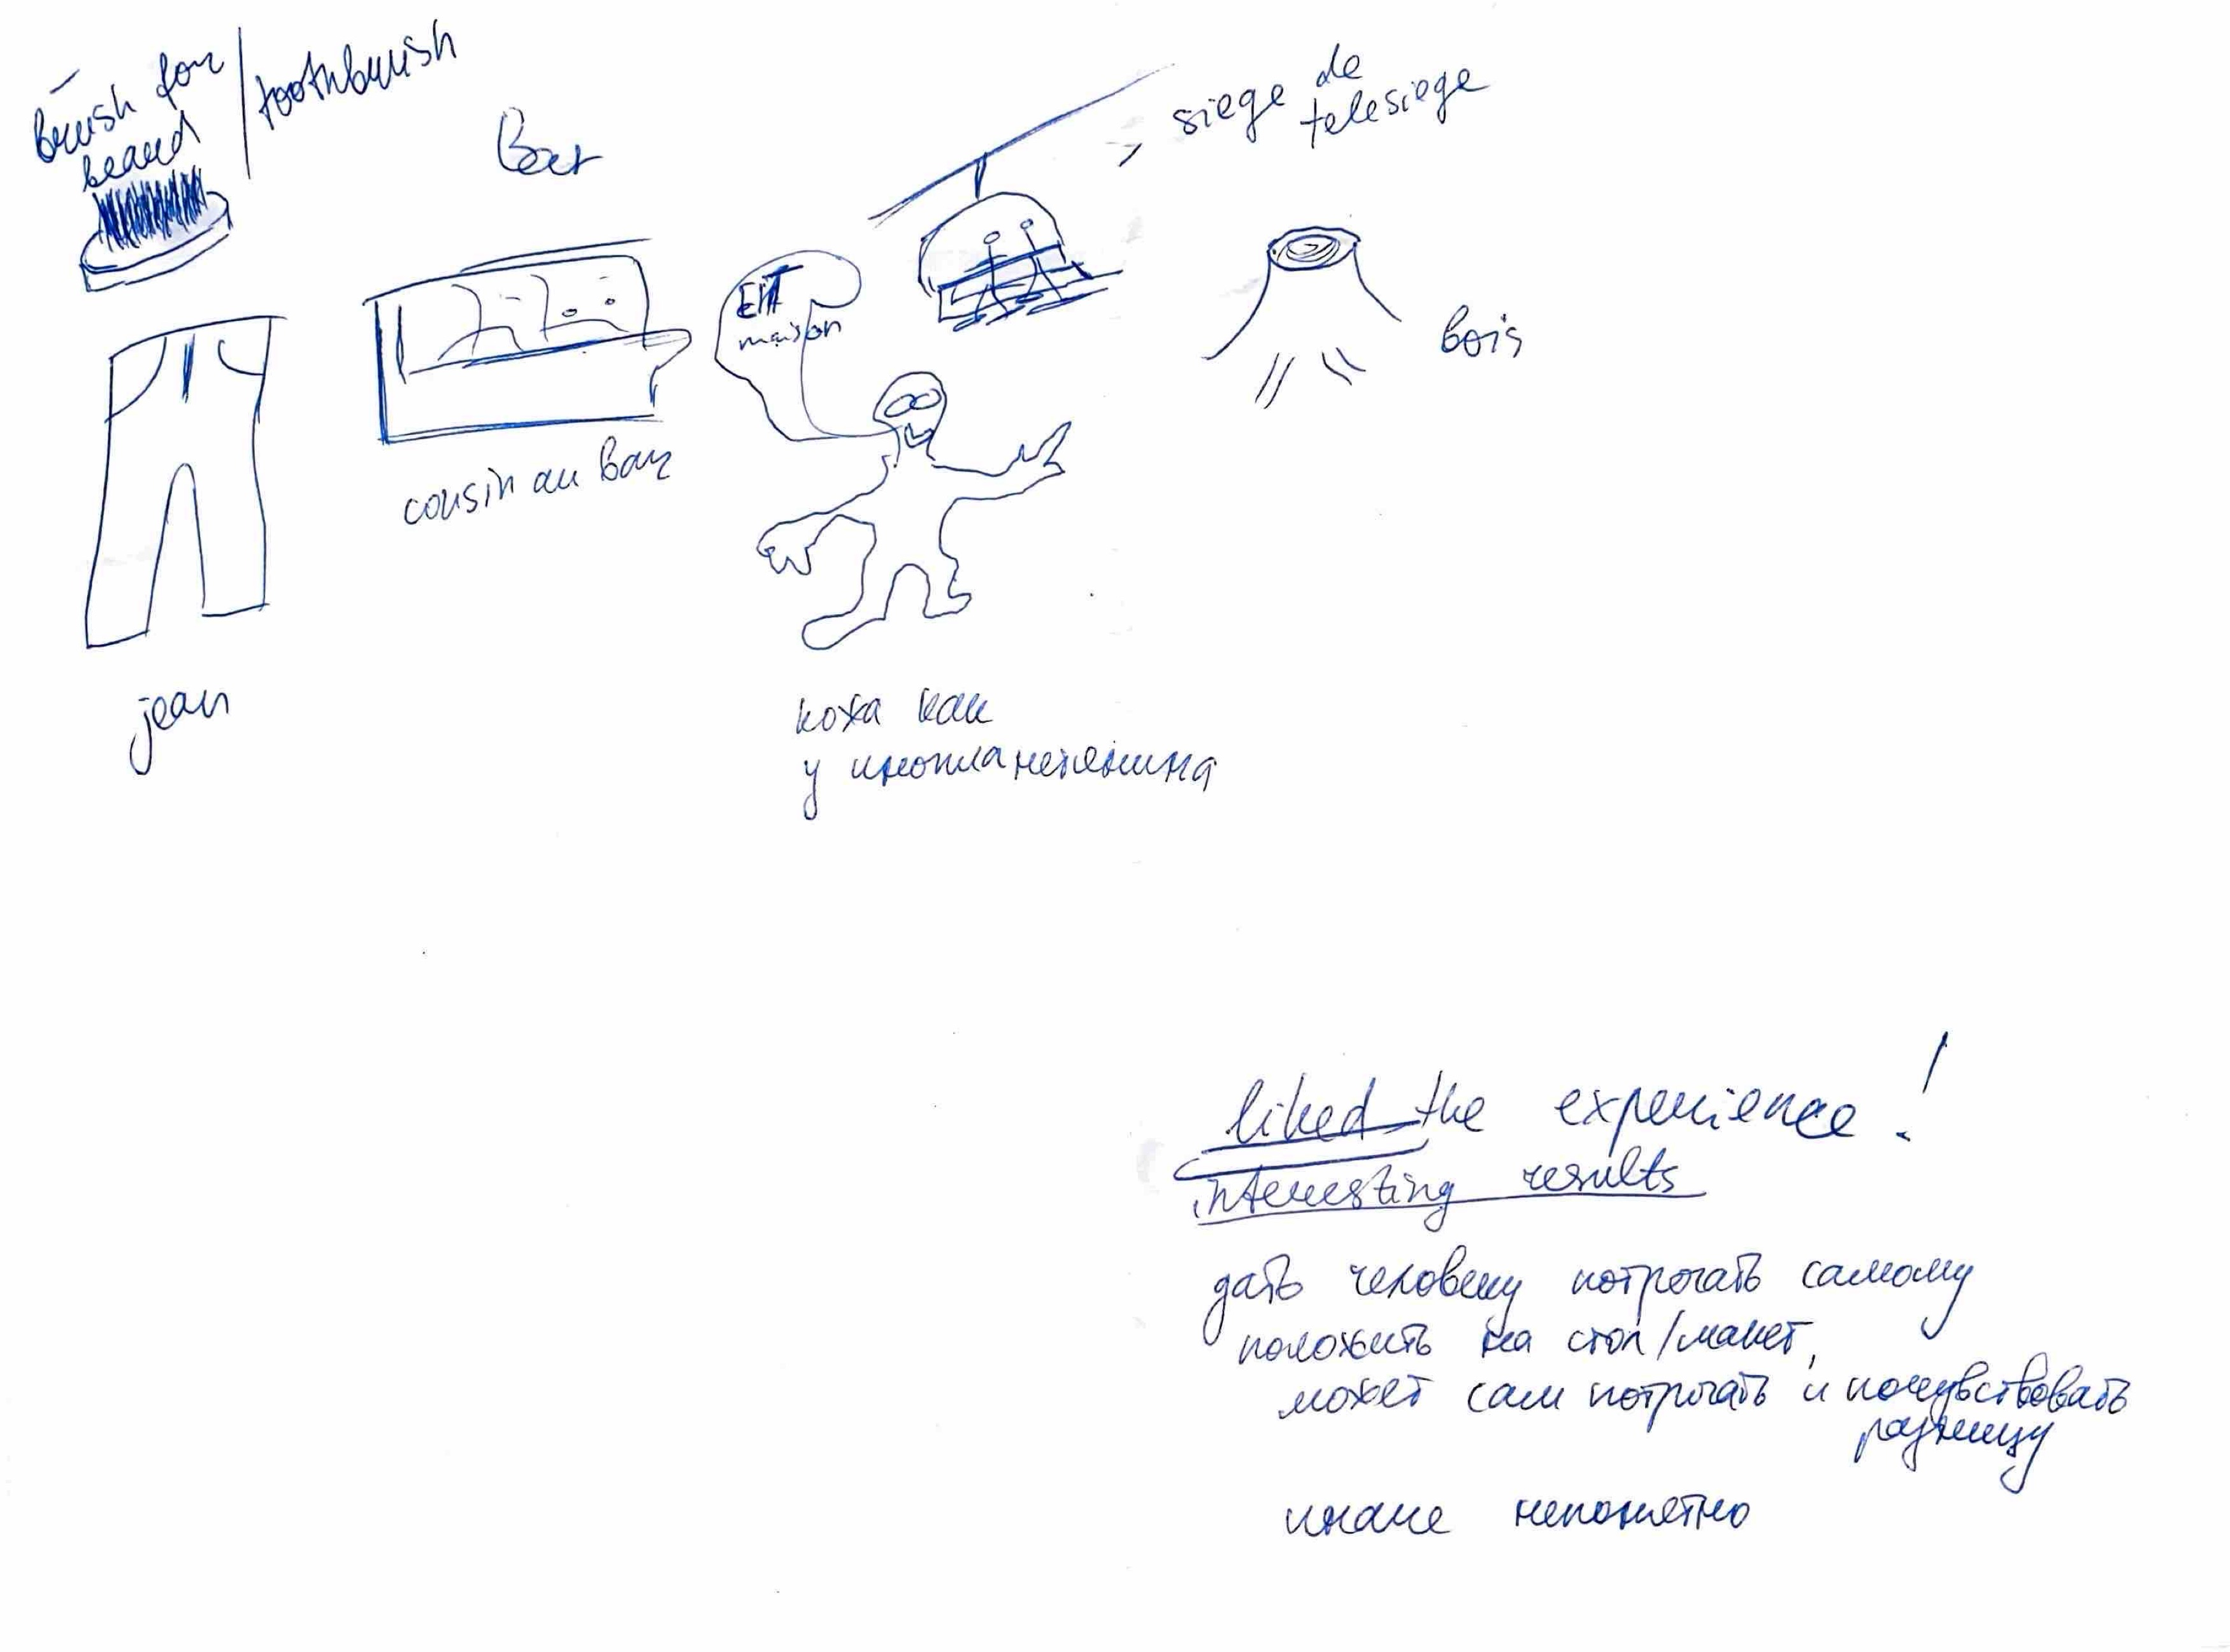 brush for
beard
/ toothbrush
Bar
siege de
telesiege
maison
bois
cousin au bar
jean
кожа как
у инопланетянина
liked the experience!
interesting results
дать человеку потрогать самому
положить на стол/макет,
может сам потрогать и почувствовать
разницу
иначе непонятно